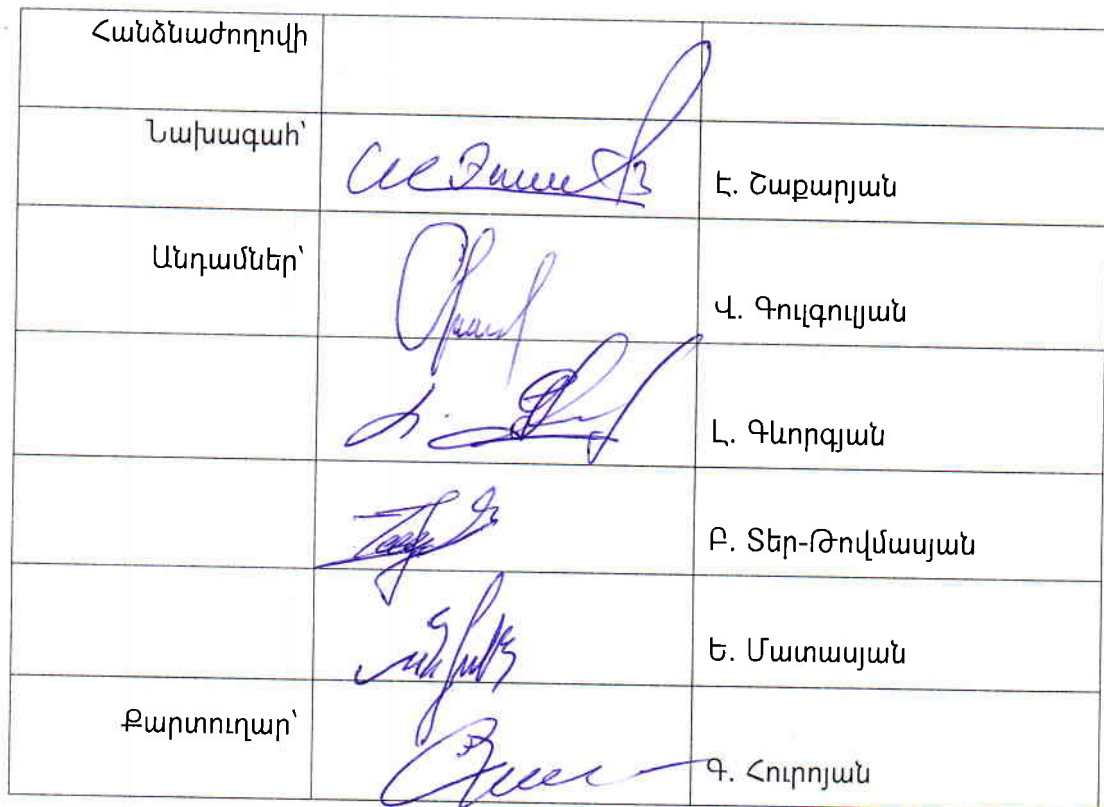 Հանձնաժողովի
Նախագահ՝
Է. Շաքարյան
Անդամներ՝
Վ. Գուլգուլյան
Լ. Գևորգյան
Բ. Տեր-Թովմասյան
Ե. Մատասյան
Քարտուղար՝
Գ. Հուրոյան